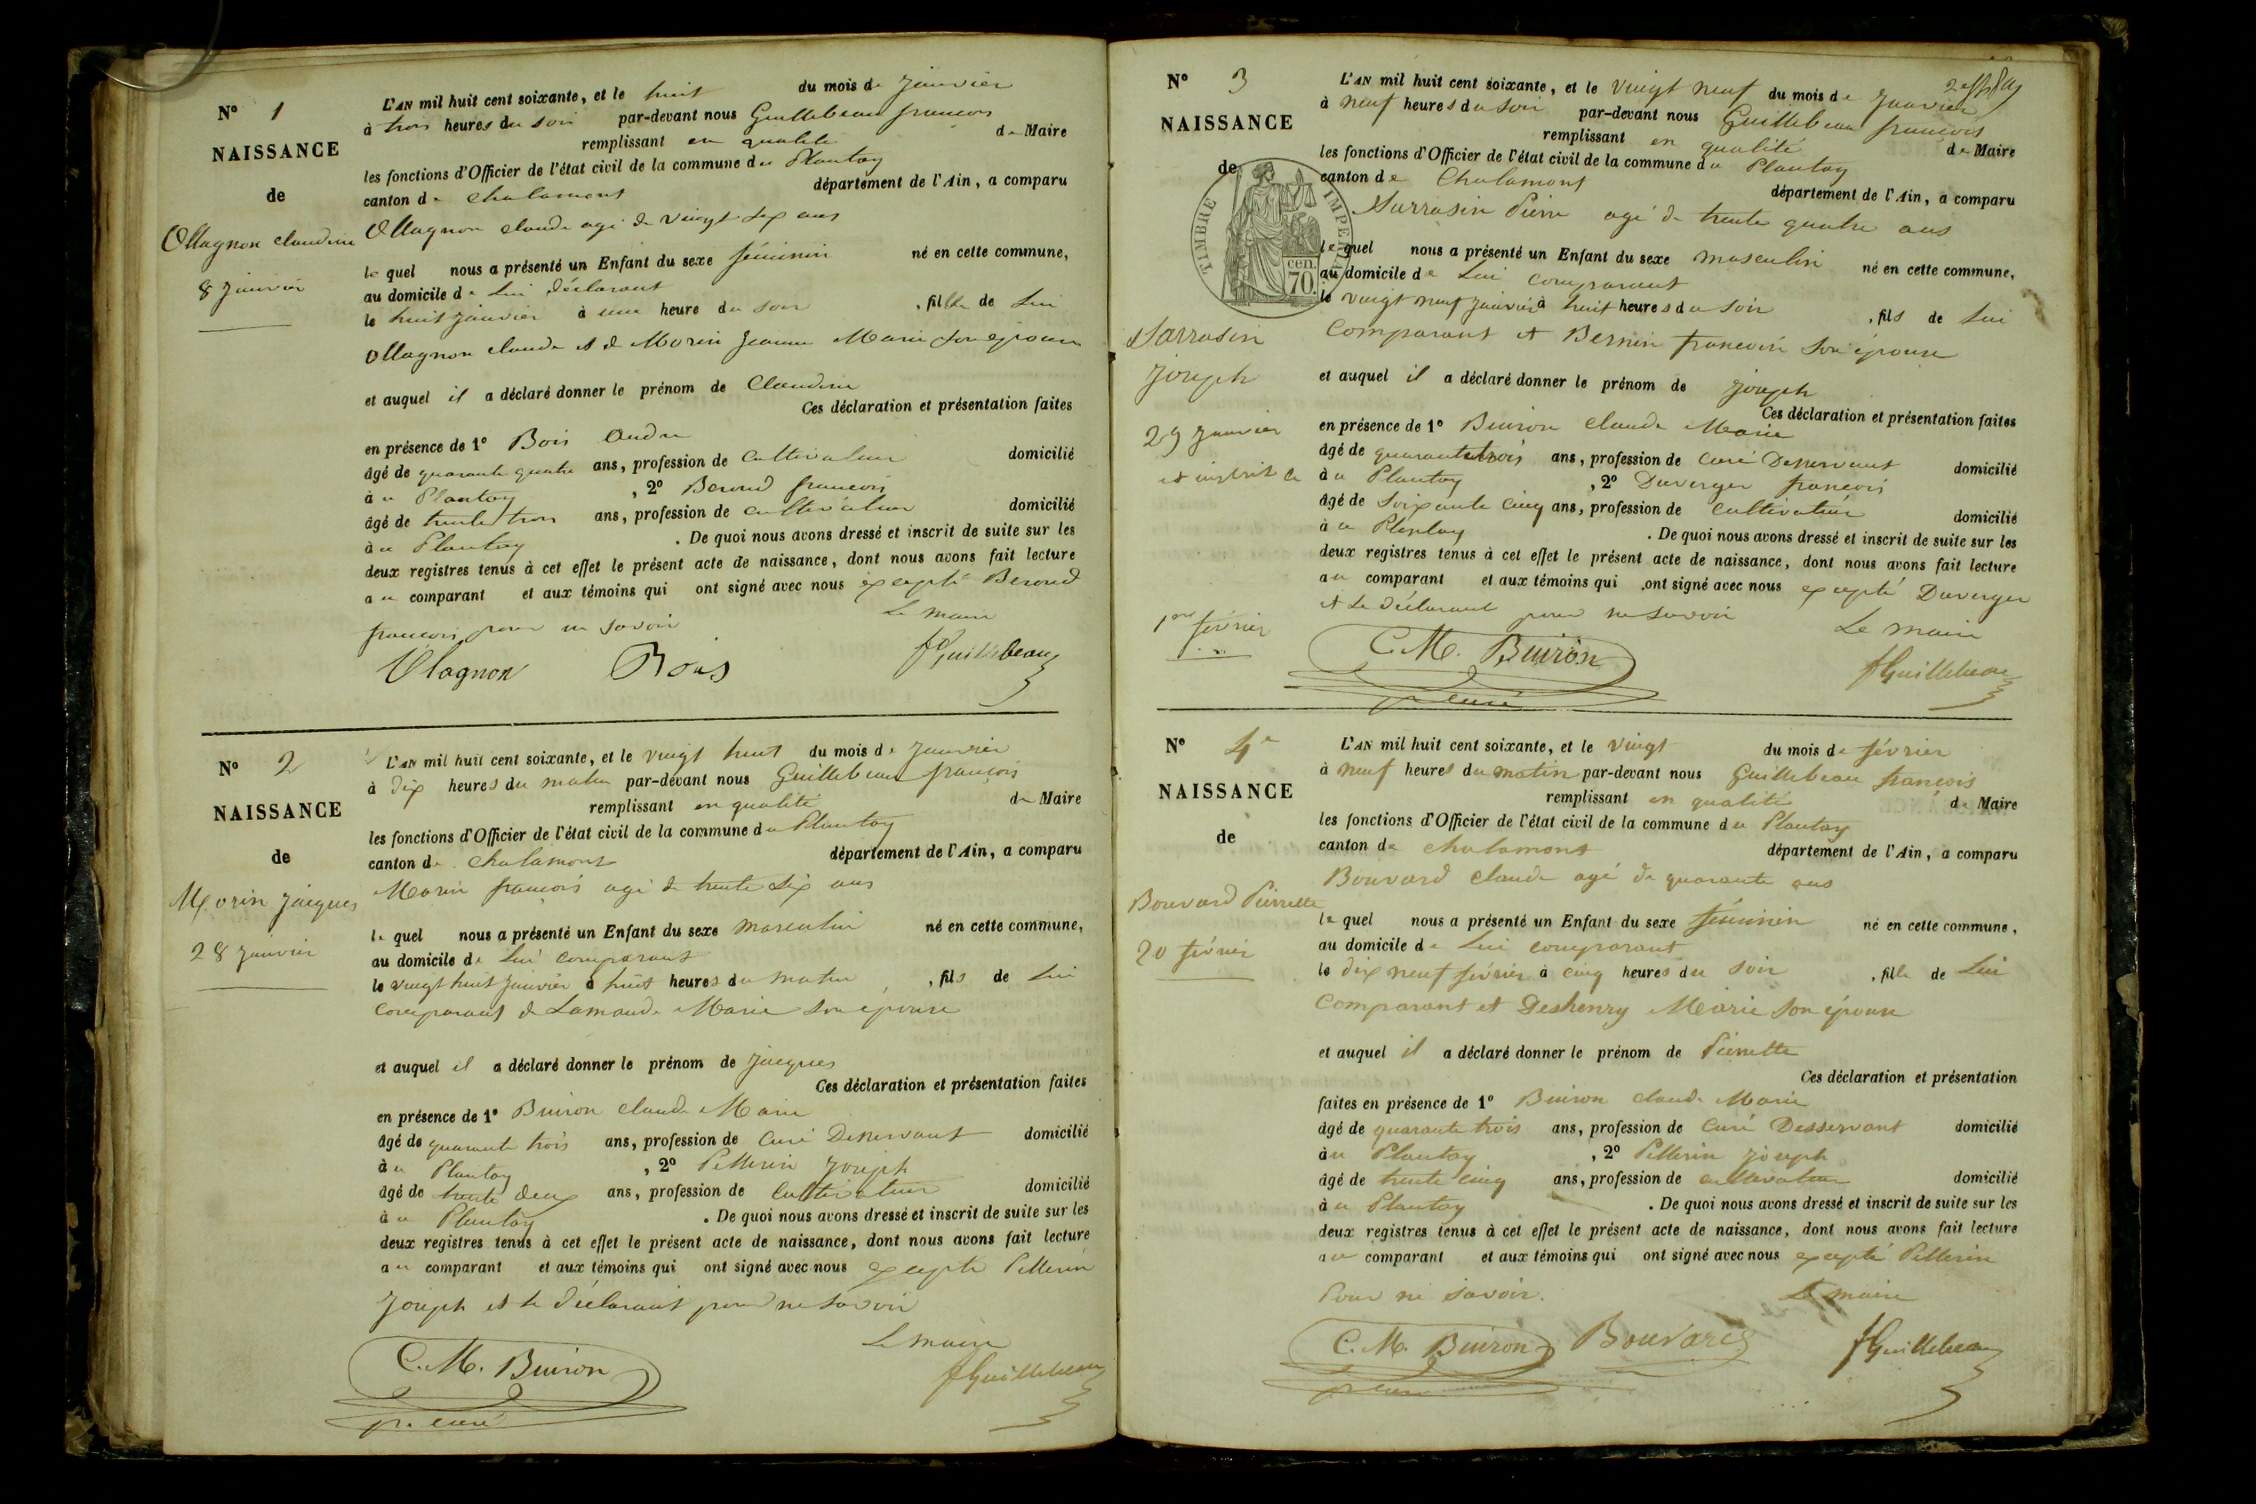 N° 1
NAISSANCE
de
Ollagnon claudine
8 janvier
L'AN mil huit cent soixante, et le huit du mois de janvier
à trois heures du soir par-devant nous Guillebeau françois
remplissant en qualité de Maire
les fonctions d'Officier de l'état civil de la commune du Plantay
canton de chalamont département de l'Ain, a comparu
Ollagnon claude agé de vingt six ans
lequel nous a présenté un Enfant du sexe féminin né en cette commune,
au domicile de lui déclarant
le huit janvier à une heure du soir, fille de lui
Ollagnon claude et de Morin jeanne Marie son épouse
et auquel il a déclaré donner le prénom de Claudine
Ces déclaration et présentation faites
en présence de 1° Bois andre
âgé de quarante quatre ans, profession de cultivateur domicilié
à u Plantay, 2° Beroud francois
âgé de trente trois ans, profession de cultivateur domicilié
à u Plantay. De quoi nous avons dressé et inscrit de suite sur les
deux registres tenus à cet effet le présent acte de naissance, dont nous avons fait lecture
au comparant et aux témoins qui ont signé avec nous excepté Beroud
francois pour ne savoir
Le maire
Olagnon Bois fGuillebeau
N° 2
NAISSANCE
de
Morin jacques
28 janvier
L'AN mil huit cent soixante, et le vingt huit du mois de janvier
à dix heures du matin par-devant nous Guillebeau françois
remplissant en qualité de Maire
les fonctions d'Officier de l'état civil de la commune du Plantay
canton de chalamont département de l'Ain, a comparu
Morin françois agé de trente six ans
lequel nous a présenté un Enfant du sexe masculin né en cette commune,
au domicile de lui comparant
le vingt huit janvier à huit heures du matin, fils de lui
comparant de Lamande Marie son épouse
et auquel il a déclaré donner le prénom de jacques
Ces déclaration et présentation faites
en présence de 1° Buiron claude Marie
âgé de quarante trois ans, profession de curé Desservant domicilié
à u Plantay, 2° Pellerin joseph
âgé de trente deux ans, profession de cultivateur domicilié
à u Plantay. De quoi nous avons dressé et inscrit de suite sur les
deux registres tenus à cet effet le présent acte de naissance, dont nous avons fait lecture
au comparant et aux témoins qui ont signé avec nous excepté Pellerin
joseph et le déclarant pour ne savoir
Le maire
C. M. Buiron fGuillebeau
p. curé
N° 3
NAISSANCE
de
TIMBRE IMPERIAL
70 cen.
Sarrasin
joseph
29 janvier
et inscrit le
1er février
L'AN mil huit cent soixante, et le vingt neuf du mois de janvier
à neuf heures du soir par-devant nous Guillebeau françois
remplissant en qualité de Maire
les fonctions d'Officier de l'état civil de la commune du Plantay
canton de Chalamont département de l'Ain, a comparu
Sarrasin Pierre agé de trente quatre ans
lequel nous a présenté un Enfant du sexe masculin né en cette commune,
au domicile de lui comparant
le vingt neuf janvier à huit heures du soir, fils de lui
comparant et Bernin francoise son épouse
et auquel il a déclaré donner le prénom de joseph
Ces déclaration et présentation faites
en présence de 1° Buiron claude Marie
âgé de quarante trois ans, profession de curé Desservant domicilié
à u Plantay, 2° Duverger francois
âgé de soixante cinq ans, profession de cultivateur domicilié
à u Plantay. De quoi nous avons dressé et inscrit de suite sur les
deux registres tenus à cet effet le présent acte de naissance, dont nous avons fait lecture
au comparant et aux témoins qui ont signé avec nous excepté Duverger
et le déclarant pour ne savoir
Le maire
C. M. Buiron fGuillebeau
p. curé
N° 4e
NAISSANCE
de
Bouvard Pierrette
20 février
L'AN mil huit cent soixante, et le vingt du mois de février
à neuf heures du matin par-devant nous Guillebeau francois
remplissant en qualité de Maire
les fonctions d'Officier de l'état civil de la commune du Plantay
canton de chalamont département de l'Ain, a comparu
Bouvard claude agé de quarante ans
lequel nous a présenté un Enfant du sexe féminin né en cette commune,
au domicile de lui comparant
le dix neuf février à cinq heures du soir, fille de lui
comparant et Deshenry Marie son épouse
et auquel il a déclaré donner le prénom de Pierrette
Ces déclaration et présentation
faites en présence de 1° Buiron claude Marie
âgé de quarante trois ans, profession de curé Desservant domicilié
à u Plantay, 2° Pellerin joseph
âgé de trente cinq ans, profession de cultivateur domicilié
à u Plantay. De quoi nous avons dressé et inscrit de suite sur les
deux registres tenus à cet effet le présent acte de naissance, dont nous avons fait lecture
au comparant et aux témoins qui ont signé avec nous excepté Pellerin
Pour ne savoir. Le maire
C. M. Buiron Bouvard fGuillebeau
p. curé